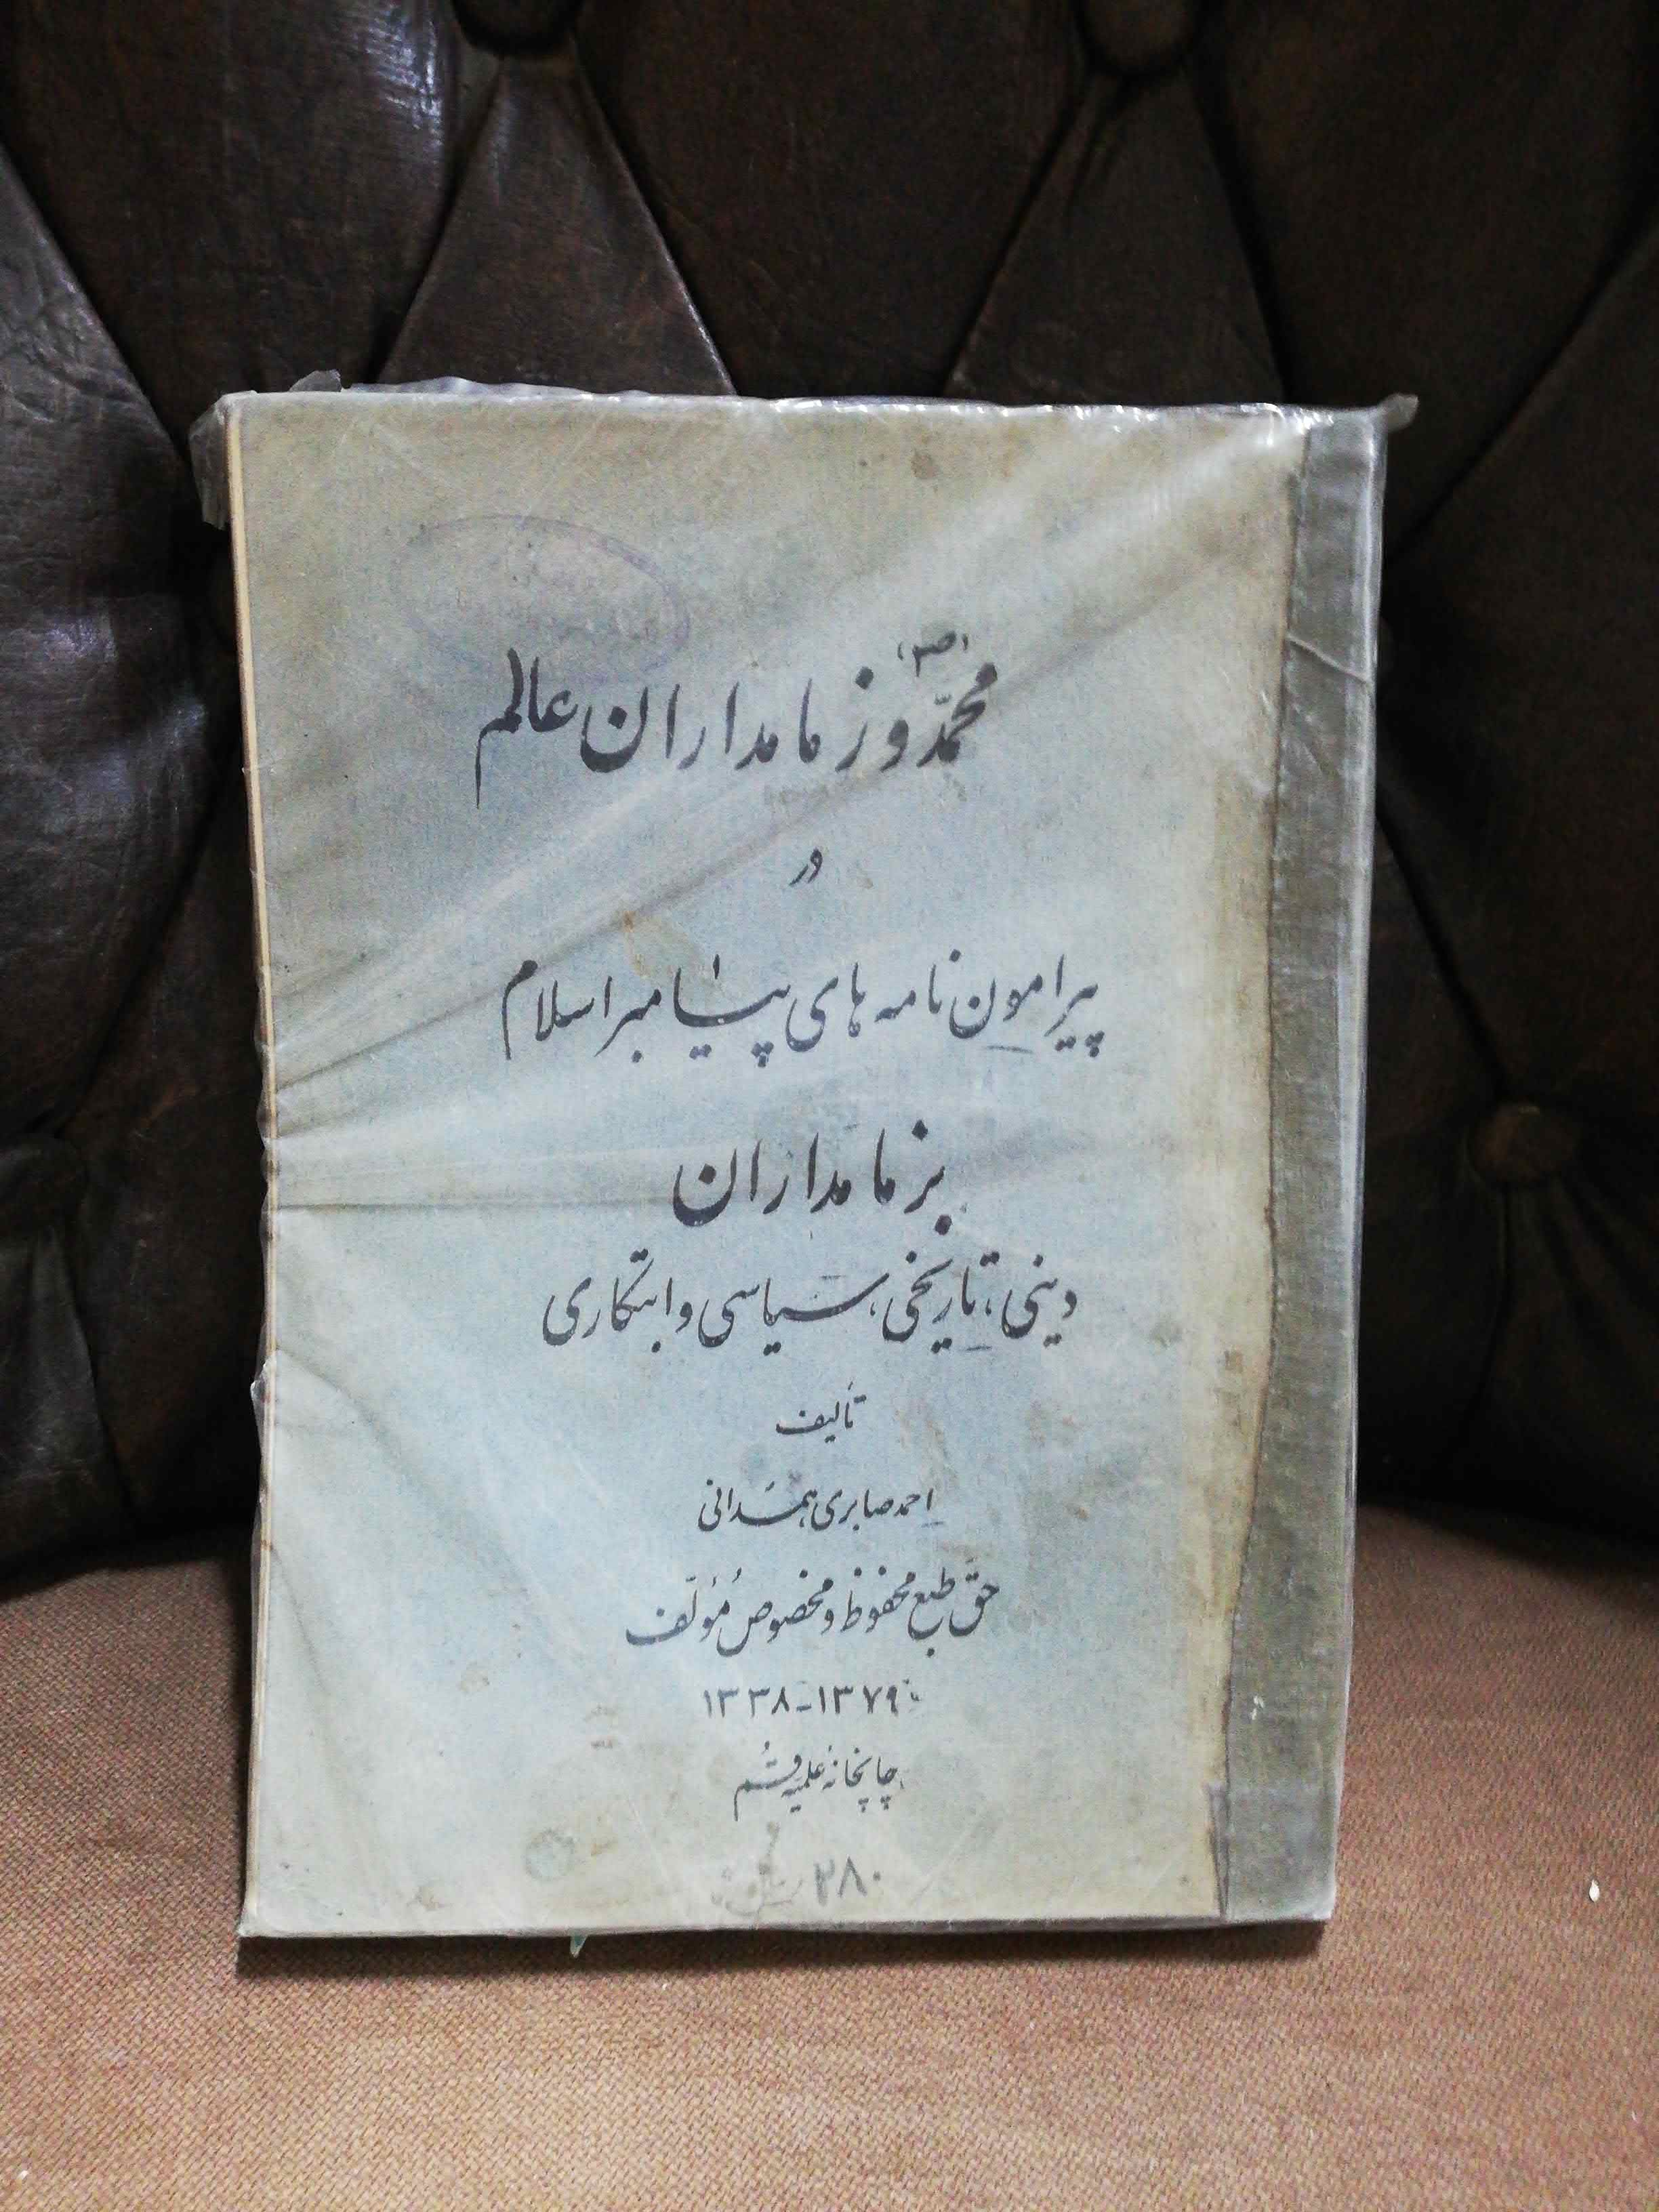 محمّد (ص) و زمامداران عالم
در
پیرامون نامه های پیامبر اسلام
بزمامداران
دینی، تاریخی، سیاسی و ابتکاری
تألیف
احمد صابری همدانی
حقّ طبع محفوظ و مخصوص مُؤلّف
۱۳۳۸-۱۳۷۹
چاپخانه علمیه قم
۲۸۰